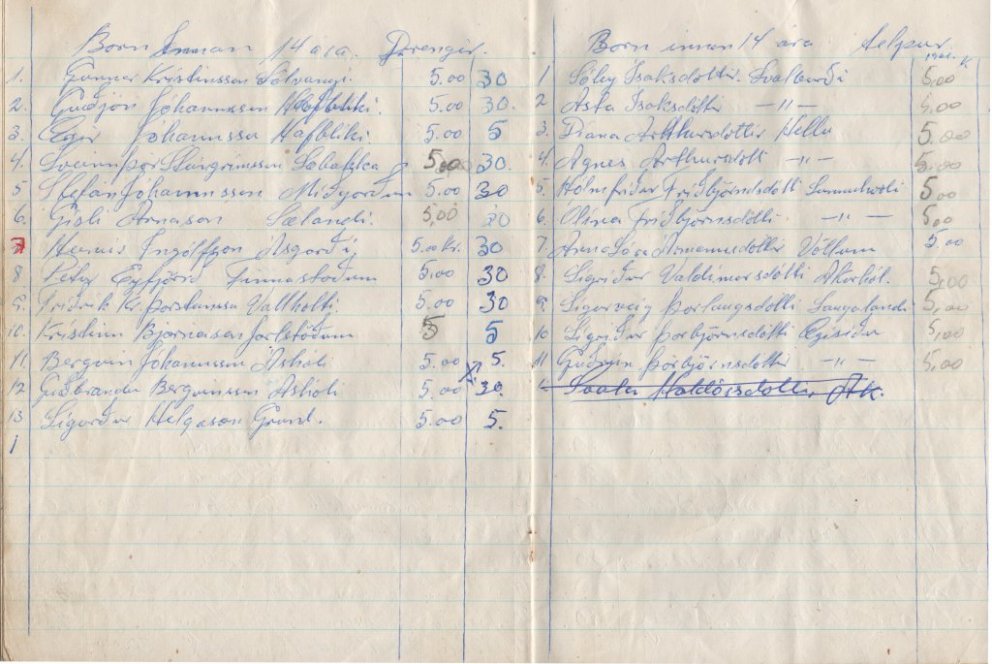 Börn innan 14 ára. Drengir.
1. Gunnar Kristinsson Sólvangi. 5.00 30
2. Guðjón Jóhannesson Hafbliki. 5.00 30.
3. Ægir Jóhannsson Hafbliki 5.00 5
4. Sveinn Þór Steingrímsson 5,00 30.
5 Stefán Jóhannsson Miðgörðum 5.00 30
6. Gísli Árnason Sælandi. 5,00 30
7 Ingólfsson Ásgarði 5.00kr. 30
8. Petur Eyfjörð Finnastöðum 5.00 30
9. Friðrik Kr. Þorsteinsson Vallholti 5.00 30
10. Kristinn Bjarnason Jarlstöðum 5 5
11. Bergvin Jóhannsson Áshóli 5.00 5.
12 Guðbrandur Bergvinsson Áshóli 5.00 X 30.
13 Sigurður Helgason Grund. 5.00 5.
1
Börn innan 14 ára telpur
1 Sóley Ísaksdóttir. Svalbarði 5,00
2 Ásta Ísaksdóttir —"— 5,00
3. Díana Arthursdóttir Hellu 5,00
4. Agnes Arthursdótt —"— 5.00
5. Hólmfríður Friðbjörnsdótti Sunnuhvoli 5,00
6. Ólína Friðbjörnsdótti —"— 5,00
7. Anna Ármannsdóttir Völlum 5,00
8. Sigríður Valdimarsdótti 5,00
9. Sigurveig Þorlaugsdótti Laugalandi 5,00
10 Sigríður Þorbjörnsdótti Ægisíðu 5,00
11 Guðrún Þorbjörnsdótti —"— 5,00
Halldórsdóttir. Ak.